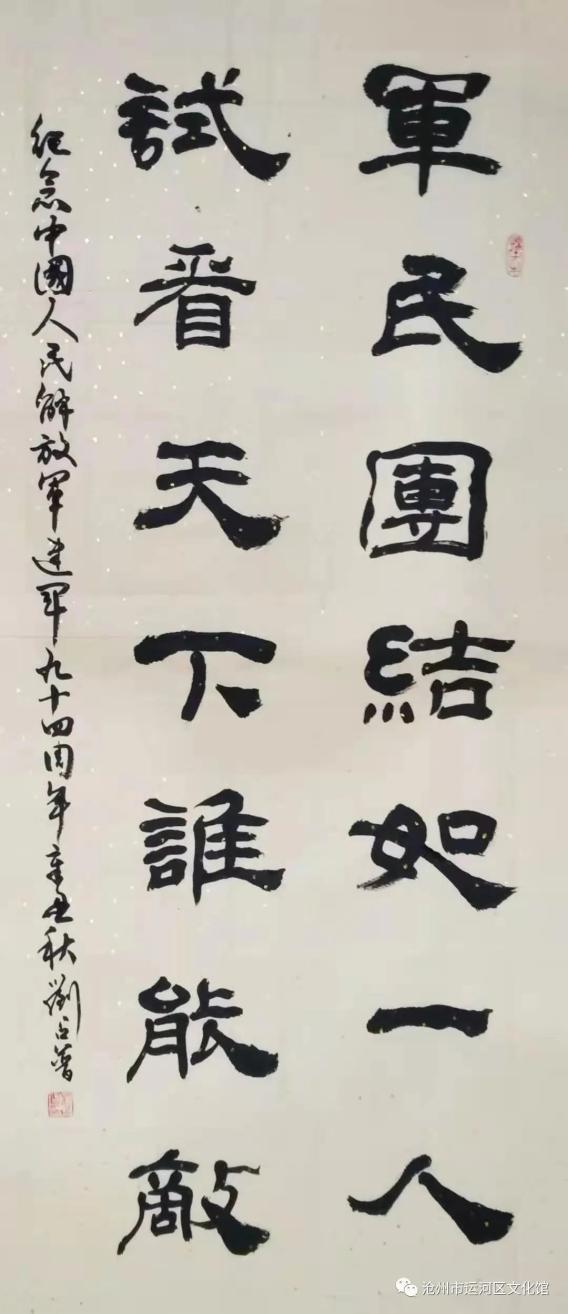 軍民團結如一人
試看天下誰能敵
纪念中國人民解放军建军九十四周年辛丑秋劉占普
沧州市运河区文化馆